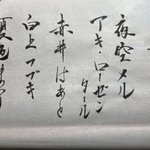 夜空メル
アキ・ローゼンタール
赤井はあと
白上フブキ
夏色まつり